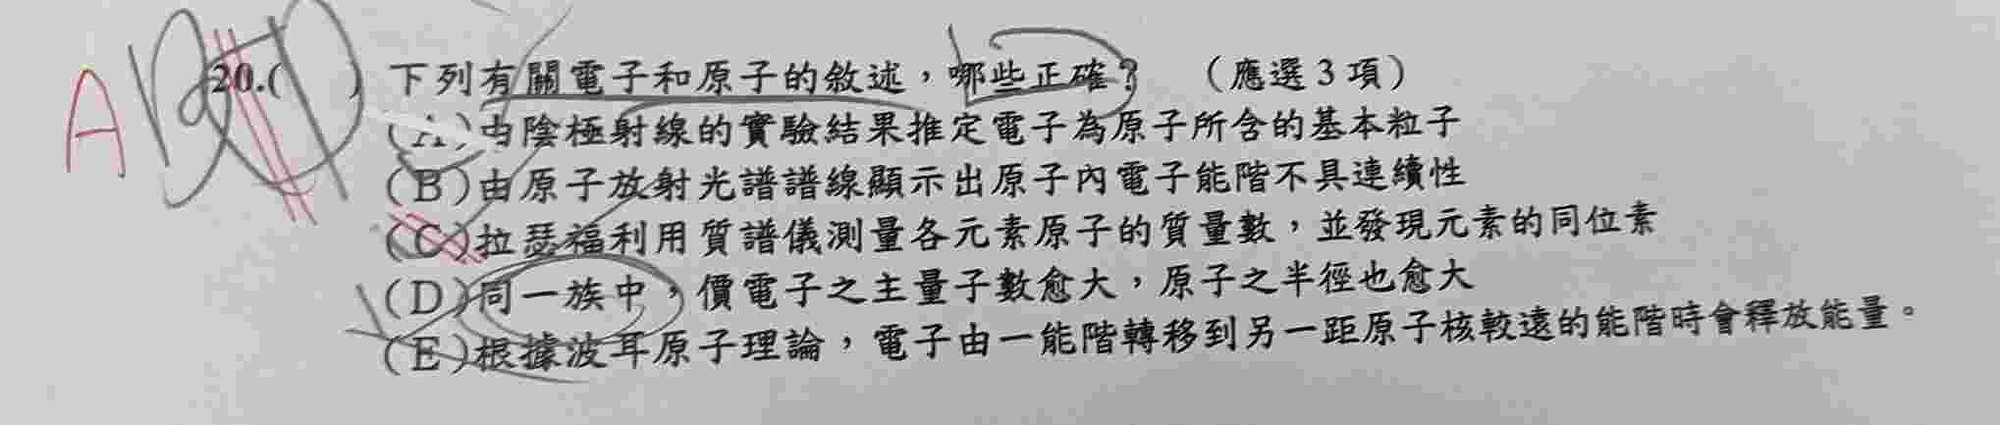 A BD 20.( ) 下列有關電子和原子的敘述，哪些正確？ （應選3項）
(A)由陰極射線的實驗結果推定電子為原子所含的基本粒子
(B)由原子放射光譜譜線顯示出原子內電子能階不具連續性
(C)拉瑟福利用質譜儀測量各元素原子的質量數，並發現元素的同位素
(D)同一族中，價電子之主量子數愈大，原子之半徑也愈大
(E)根據波耳原子理論，電子由一能階轉移到另一距原子核較遠的能階時會釋放能量。